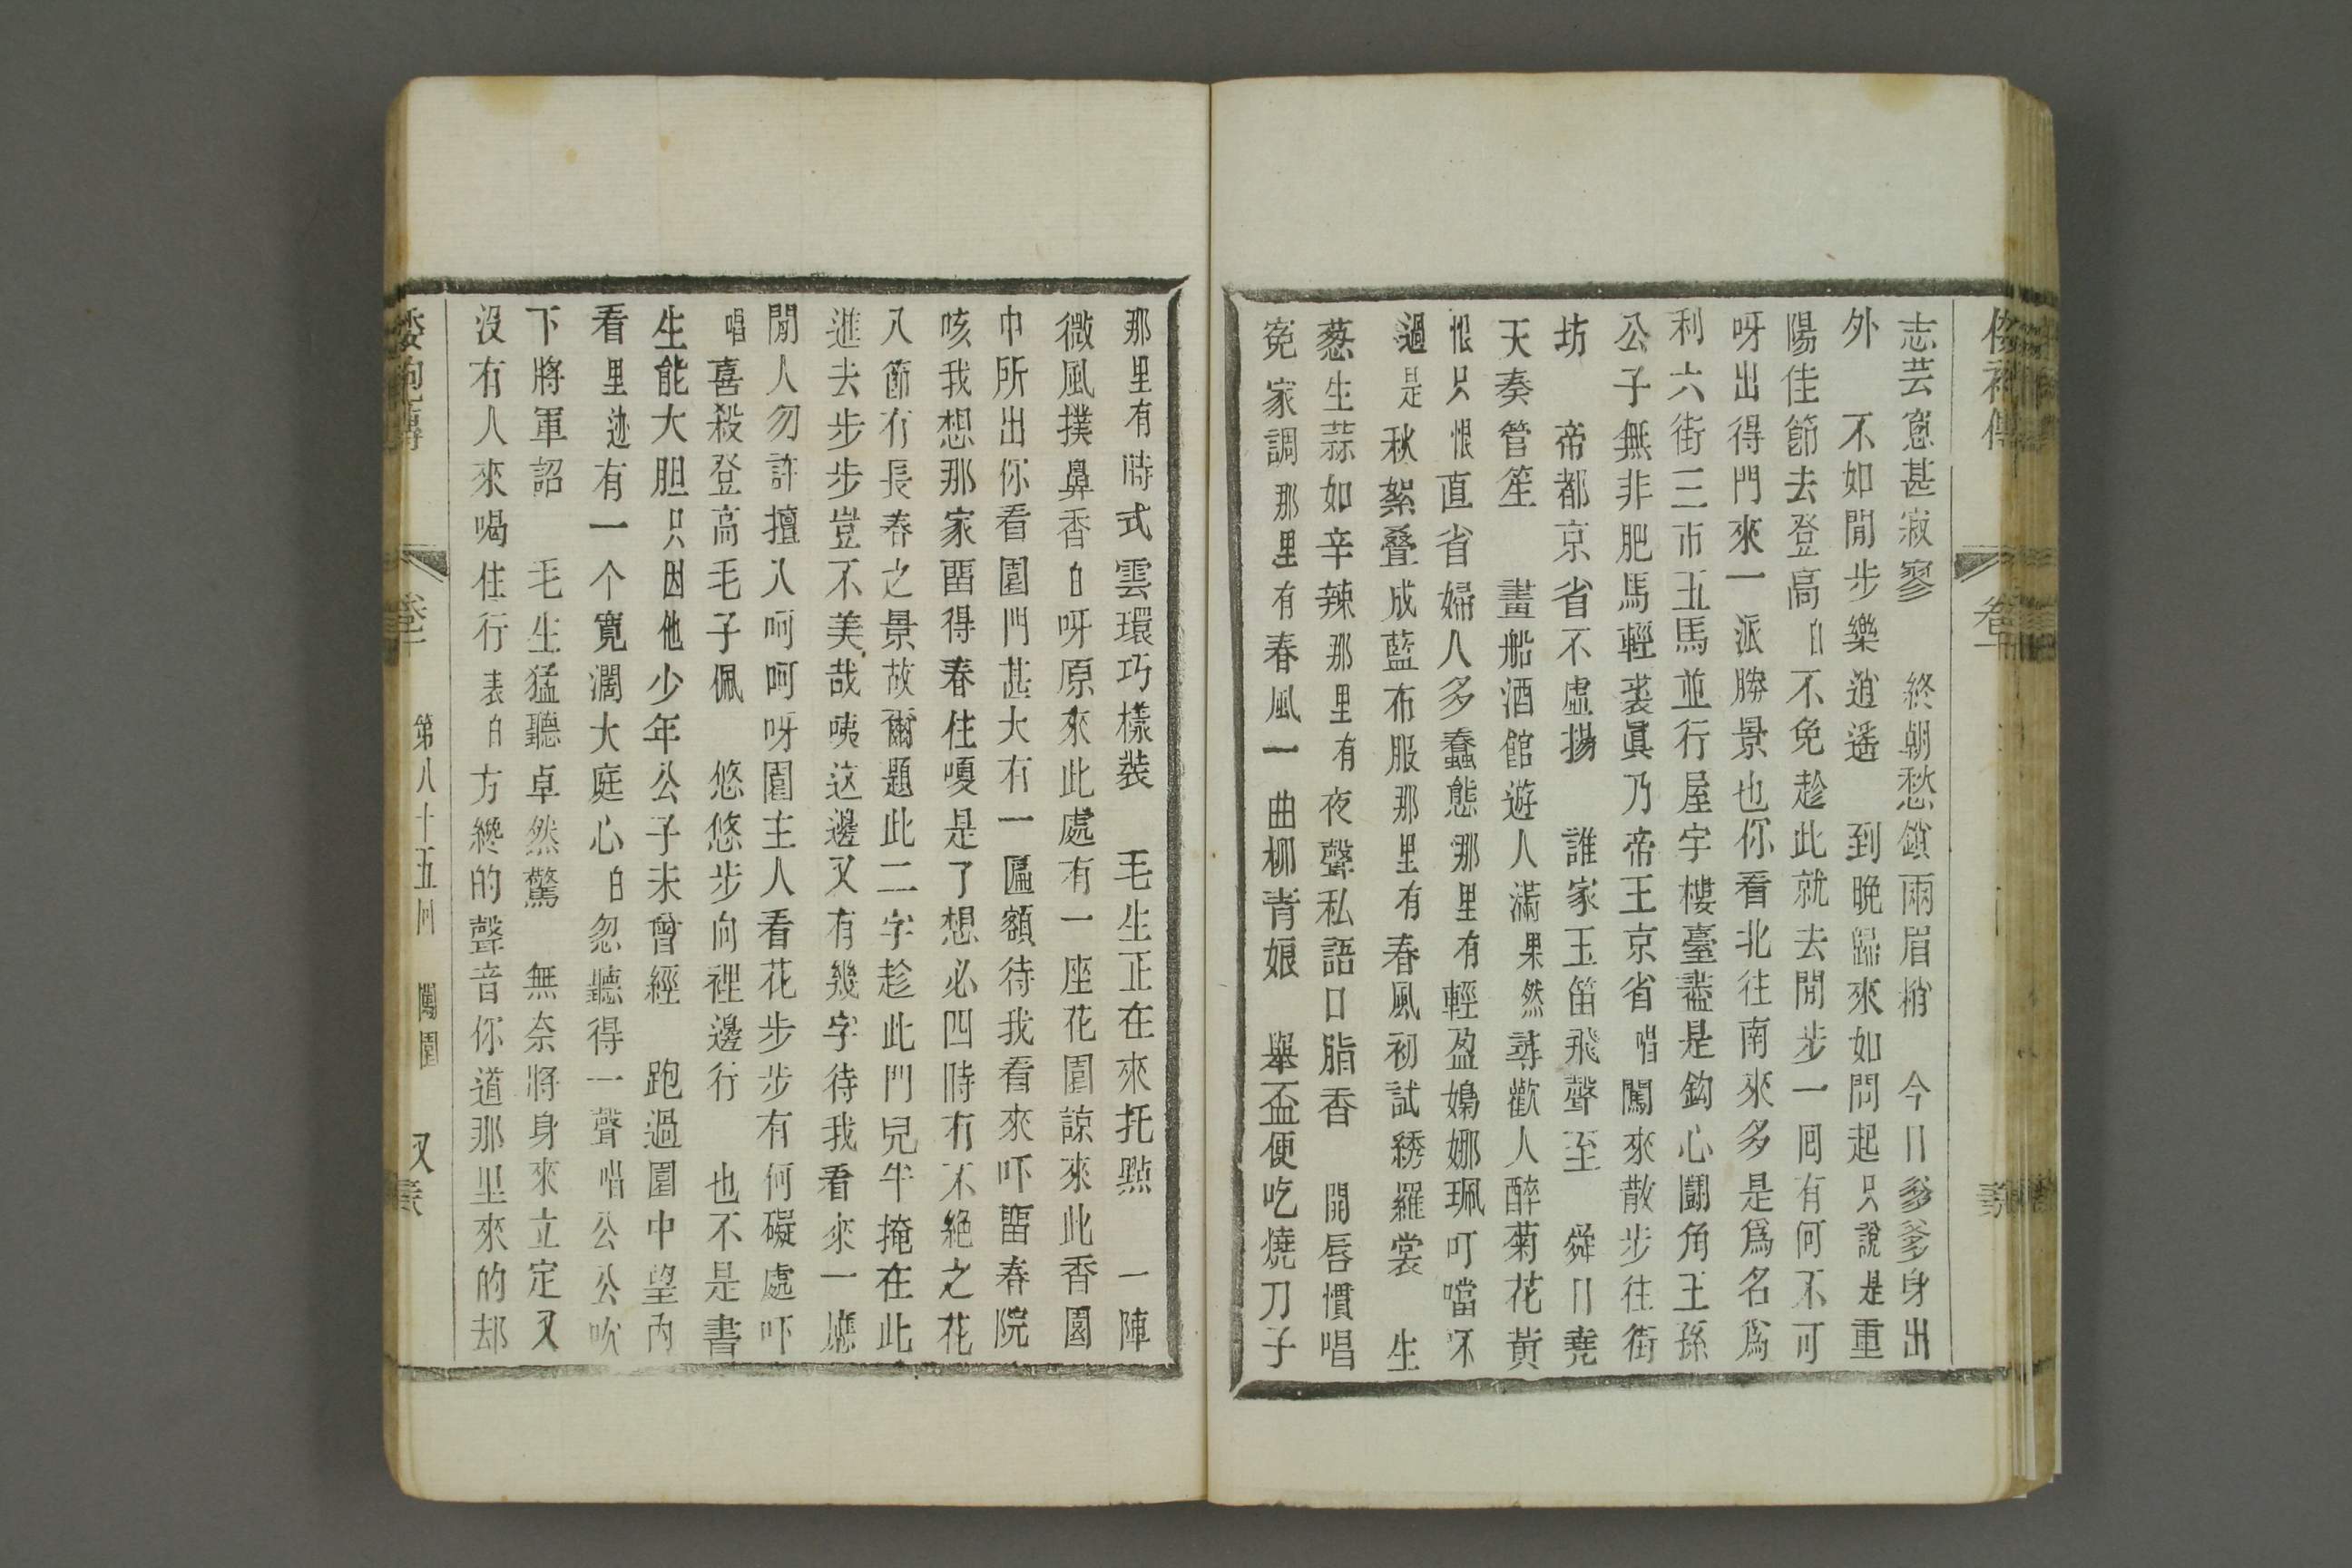 志芸窻甚寂寥　終朝愁鎖兩眉梢　今日爹爹身出
外　不如閒步樂逍遙　到晚歸來如問起只說是重
陽佳節去登高白不免趁此就去閒步一囘有何不可
呀出得門來一派勝景也你看北往南來多是爲名爲
利六街三市五馬並行屋宇樓臺盡是鈎心鬪角王孫
公子無非肥馬輕裘眞乃帝王京省唱闖來散步往街
坊　帝都京省不虛揚　誰家玉笛飛聲至　舜日堯
天奏管笙　畫船酒館遊人滿果然尋歡人醉菊花黃
恨只恨直省婦人多蠢態那里有輕盈嬝娜珮叮噹不
過是秋絮叠成藍布服那里有春風初試綉羅裳　生
葱生蒜如辛辣那里有夜聲私語口脂香　開唇慣唱
寃家調那里有春風一曲柳青娘　舉盃便吃燒刀子
那里有時式雲環巧樣裝　毛生正在來托㸃　一陣
微風撲鼻香白呀原來此處有一座花園諒來此香園
中所出你看園門甚大有一匾額待我看來吓畱春院
咳我想那家畱得春住嗄是了想必四時有不絕之花
八節有長春之景故爾題此二字趁此門兒半掩在此
進去步步步豈不美哉咦这邊又有幾字待我看來一應
閒人勿許擅入呵呵呀園主人看花步步有何礙處吓
唱喜殺登高毛子佩　悠悠步向裡邊行　也不是書
生能大胆只因他少年公子未曾經　跑過園中望內
看里迹有一个寬濶大庭心白忽聽得一聲唱公公吹
下將軍詔　毛生猛聽卓然驚　無奈將身來立定又
没有人來喝住行表白方纔的聲音你道那里來的却
倭袍傳　卷十　第八十五囘　闖園　又表